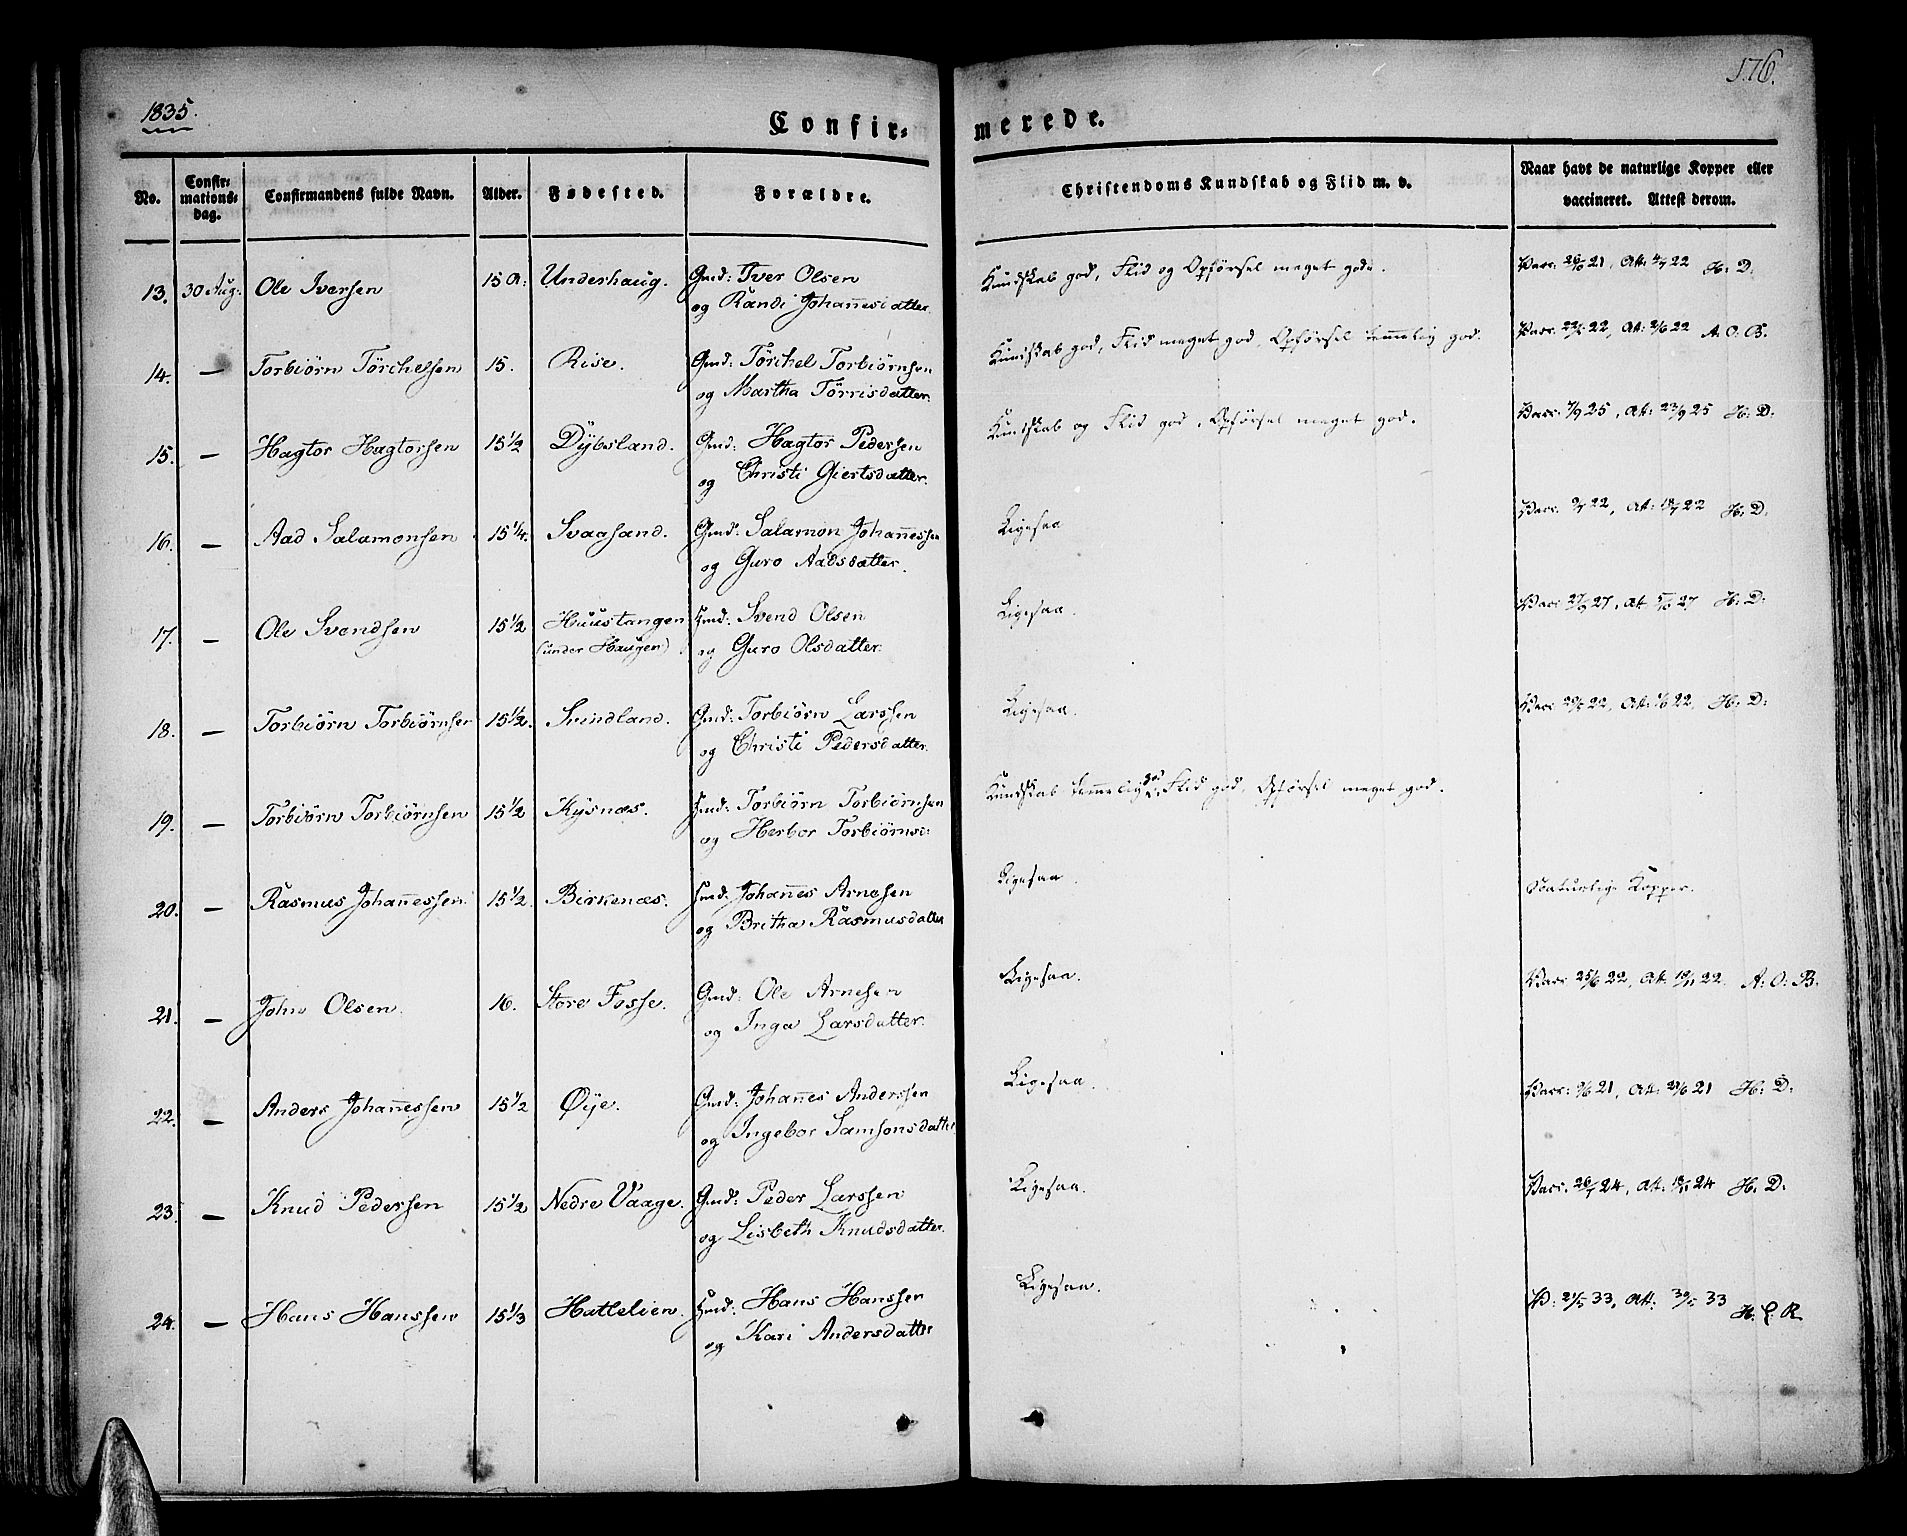 1835.
176.
Confir-
merede.
No.
Confir-
mations-
dag.
Confirmandens fulde Navn.
Alder.
Fødested.
Forældre.
Christendoms Kundskab og Flid m. v.
Naar havt de naturlige Kopper eller
vaccineret. Attest derom.
13. 30 Aug. Ole Iversen 15 A: Underhaug. Gmd: Iver Olsen
og Randi Johannesdatter
Kundskab god, Flid og Opførsel meget gode.
Vacc: 21, Att: 22 H: D:
14. — Torbiørn Törchelsen 15. Rise. Gmd: Törchel Torbiørnsen
og Martha Törrisdatter.
Kundskab god, Flid meget god, Opførsel temmelig god.
Vacc: 22, Att: 22 A. O. B.
15. — Hagtor Hagtorsen 15 1/2 Dÿbsland. Gmd: Hagtor Pedersen
og Christi Giertsdatter.
Kundskab og Flid god, Opførsel meget god.
Vacc: 7/9 25, Att: 23/9 25 H: D:
16. — Aad Salamonsen 15 1/4. Svaasand. Gmd: Salamon Johannessen
og Guro Aadsdatter.
Ligesaa
Vacc: 22, Att: 22 H: D.
17. — Ole Svendsen 15 1/2 Huustangen
(under Haugen)
Hmd: Svend Olsen
og Guro Olsdatter.
Ligesaa.
Vacc: 27, Att: 27 H: D:
18. — Torbiørn Torbiørnsen 15 1/2. Svindland. Gmd: Torbiørn Larssen
og Christi Pedersdatter.
Ligesaa.
Vacc: 22, Att: 22, H: D:
19. — Torbiørn Torbiørnsen 15 1/2 Kysnæs. Hmd: Torbiørn Torbiørnsen
og Herbor Torbiørnsd:
Kundskab temmelig god, Flid god, Opførsel meget god.
20. — Rasmus Johannessen 15 1/2. Birkenæs. Hmd: Johannes Arnesen
og Britha Rasmusdatter
Ligesaa.
Naturlige Kopper.
21. — John Olsen. 16. Store Fosse. Gmd: Ole Arnesen
og Inga Larsdatter.
Ligesaa.
Vacc: 25/6 22, Att: 22. A: O: B.
22. — Anders Johannessen 15 1/2 Øije. Gmd: Johannes Anderssen
og Ingebor Samsonsdatter
Ligesaa.
Vacc: 21, Att: 21 H: D:
23. — Knud Pedersen 15 1/2 Nedre Vaage. Gmd: Peder Larssen
og Lisbeth Knudsdatter.
Ligesaa.
Vacc: 24, Att: 24 H: D:
24. — Hans Hanssen 15 1/3 Hattelien. Hmd: Hans Hanssen
og Kari Andersdatter
Ligesaa.
V: 21/5 33, Att: 30/5 33